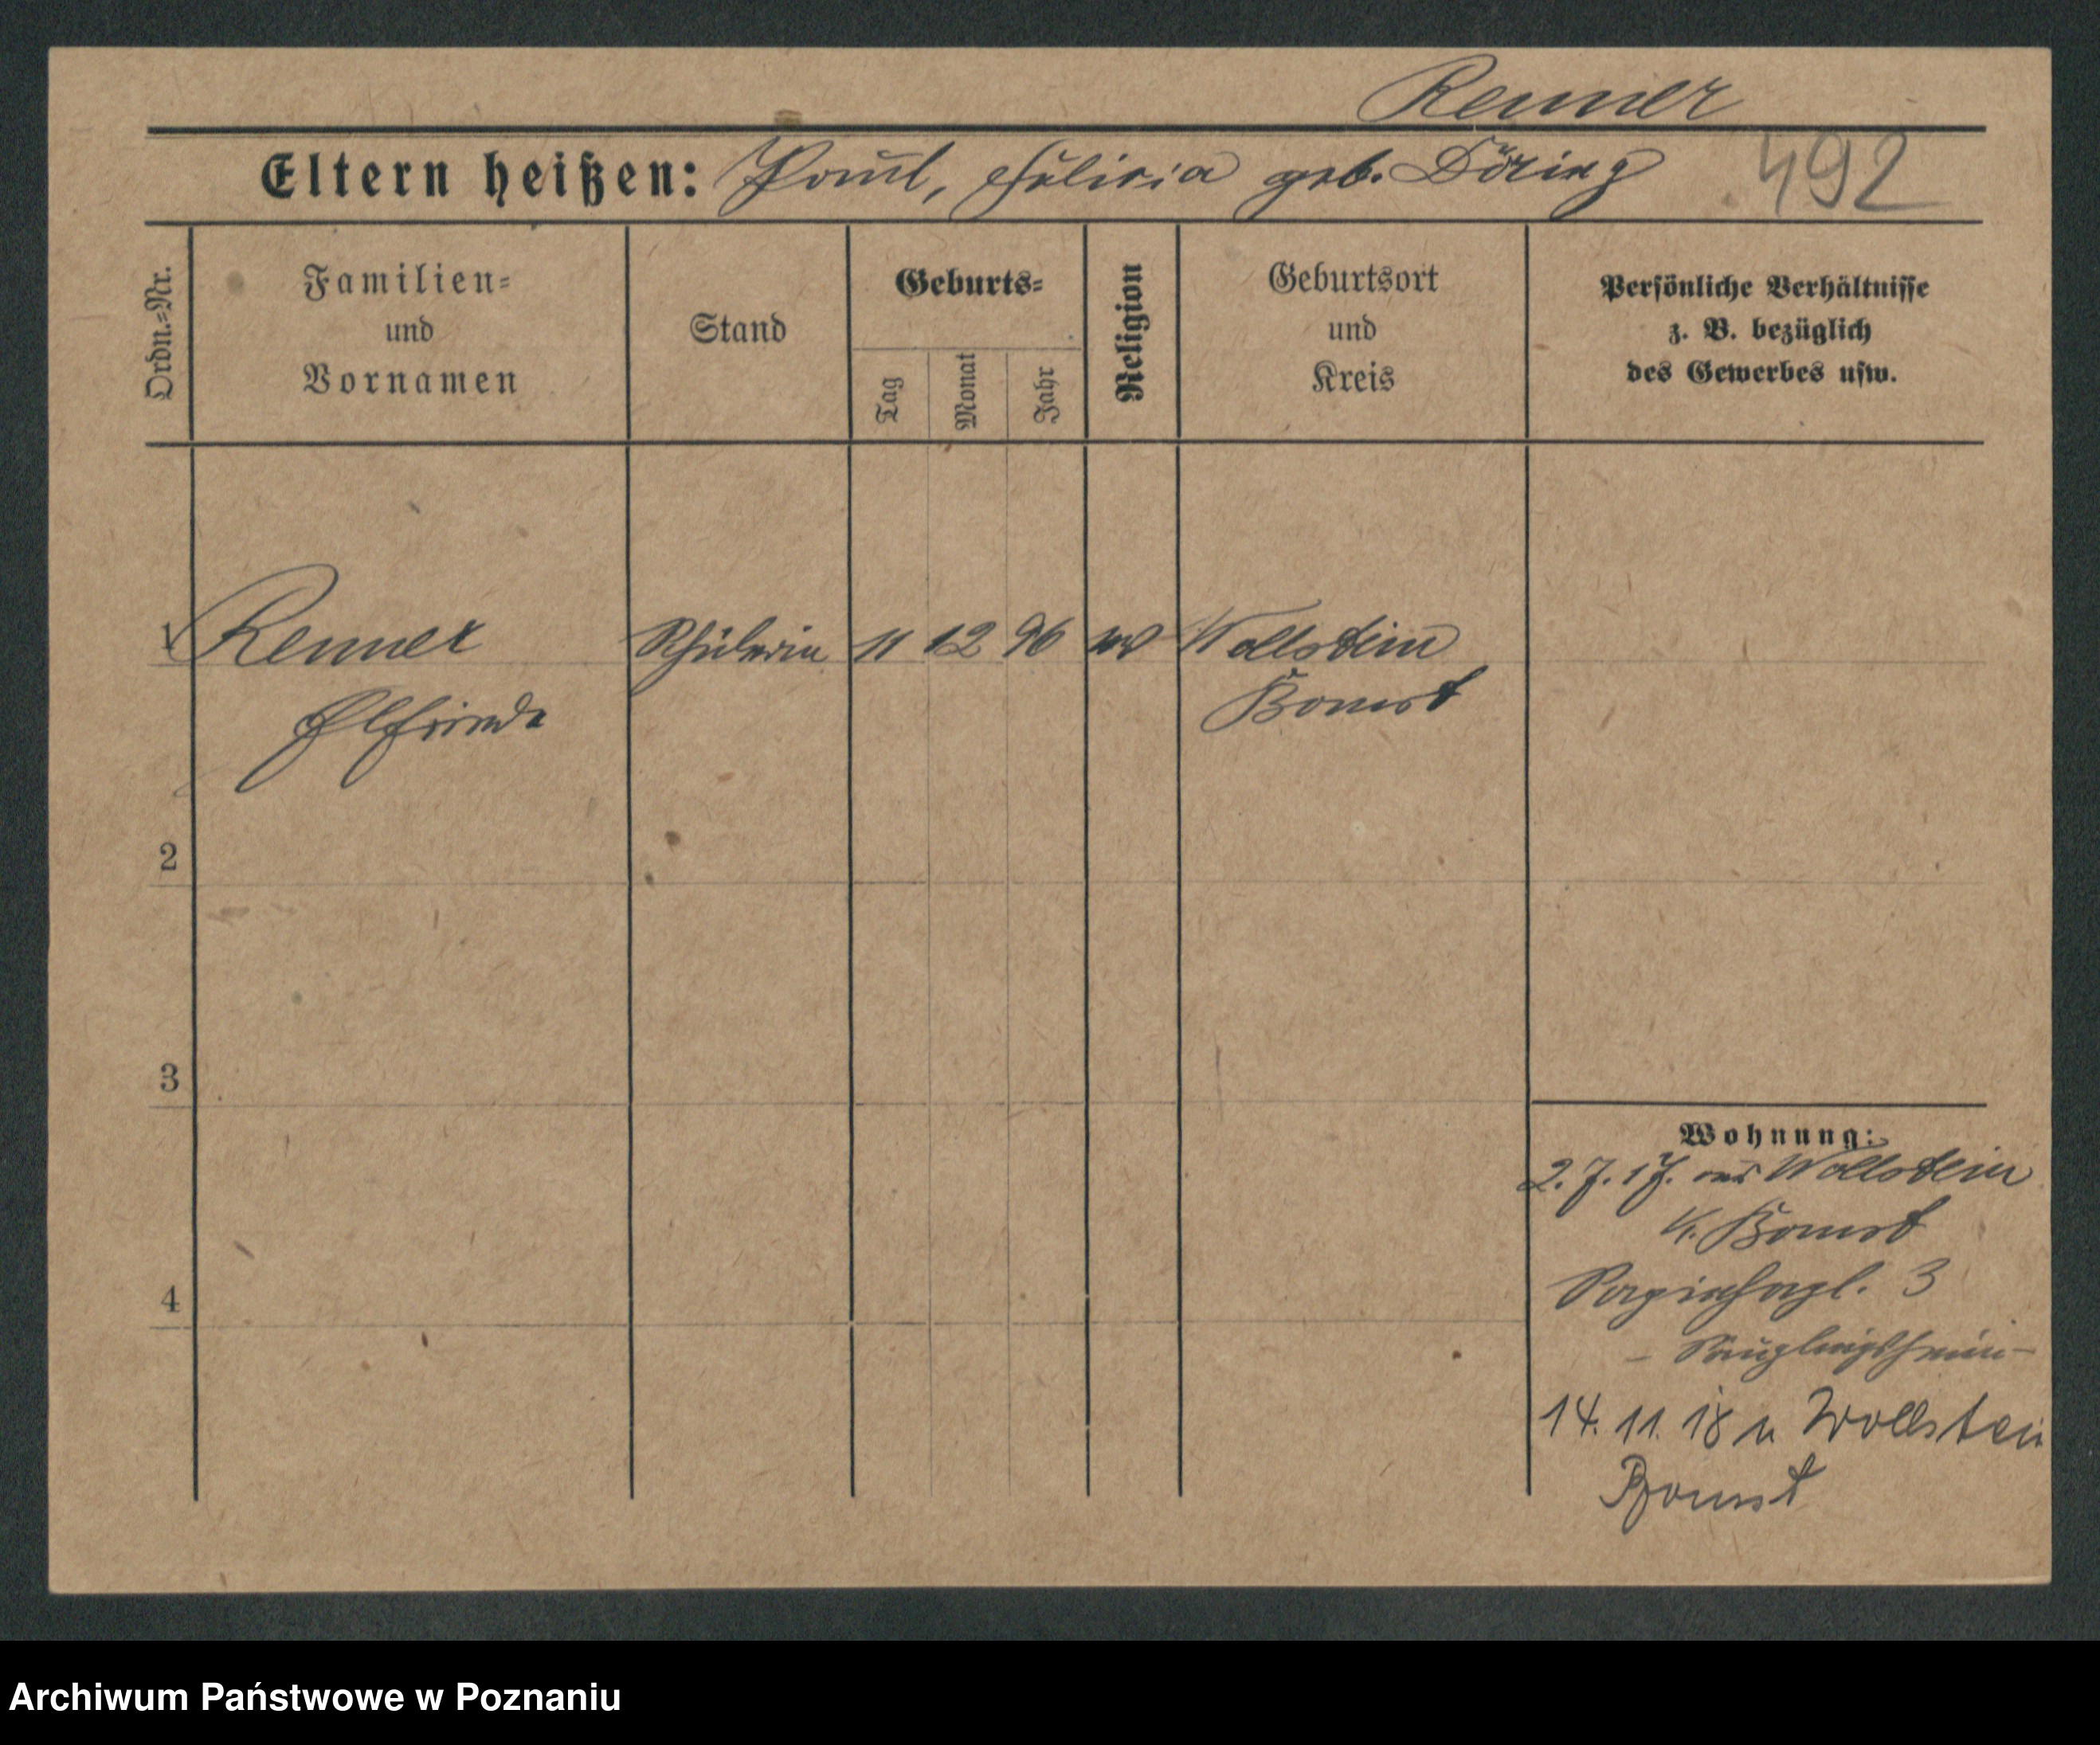 Renner
Eltern heißen: Paul, Felicia geb. Döring 492
Ordn.=Nr.
Familien=
und
Vornamen
Stand
Geburts=
Tag
Monat
Jahr
Religion
Geburtsort
und
Kreis
Persönliche Verhältnisse
z. B. bezüglich
des Gewerbes usw.
1 Renner Schülerin 11 12 96 ev Wollstein
Elfriede Bomst
2
3
4
Wohnung:
2.7.17. aus Wollstein
K. Bomst
3
- Säuglingsheim -
14. 11. 18 n Wollstein
Bomst
Archiwum Państwowe w Poznaniu